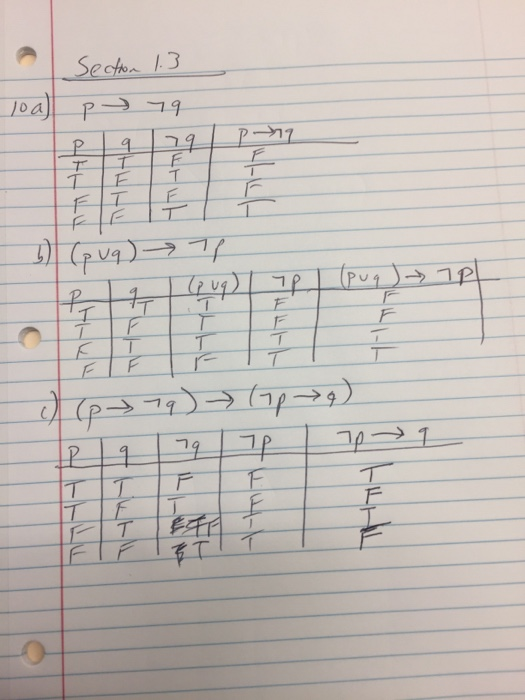 Section 1.3
10a) p → ¬q
p | q | ¬q | p→¬q
T | T | F | F
T | F | T | T
F | T | F | F
F | F | T | T
b) (p∪q) → ¬p
p | q | (p∪q) | ¬p | (p∪q) → ¬p
T | T | T | F | F
T | F | T | F | F
F | T | T | T | T
F | F | F | T | T
c) (p → ¬q) → (¬p → q)
p | q | ¬q | ¬p | ¬p → q
T | T | F | F | T
T | F | T | F | F
F | T | F | T | T
F | F | T | T | F